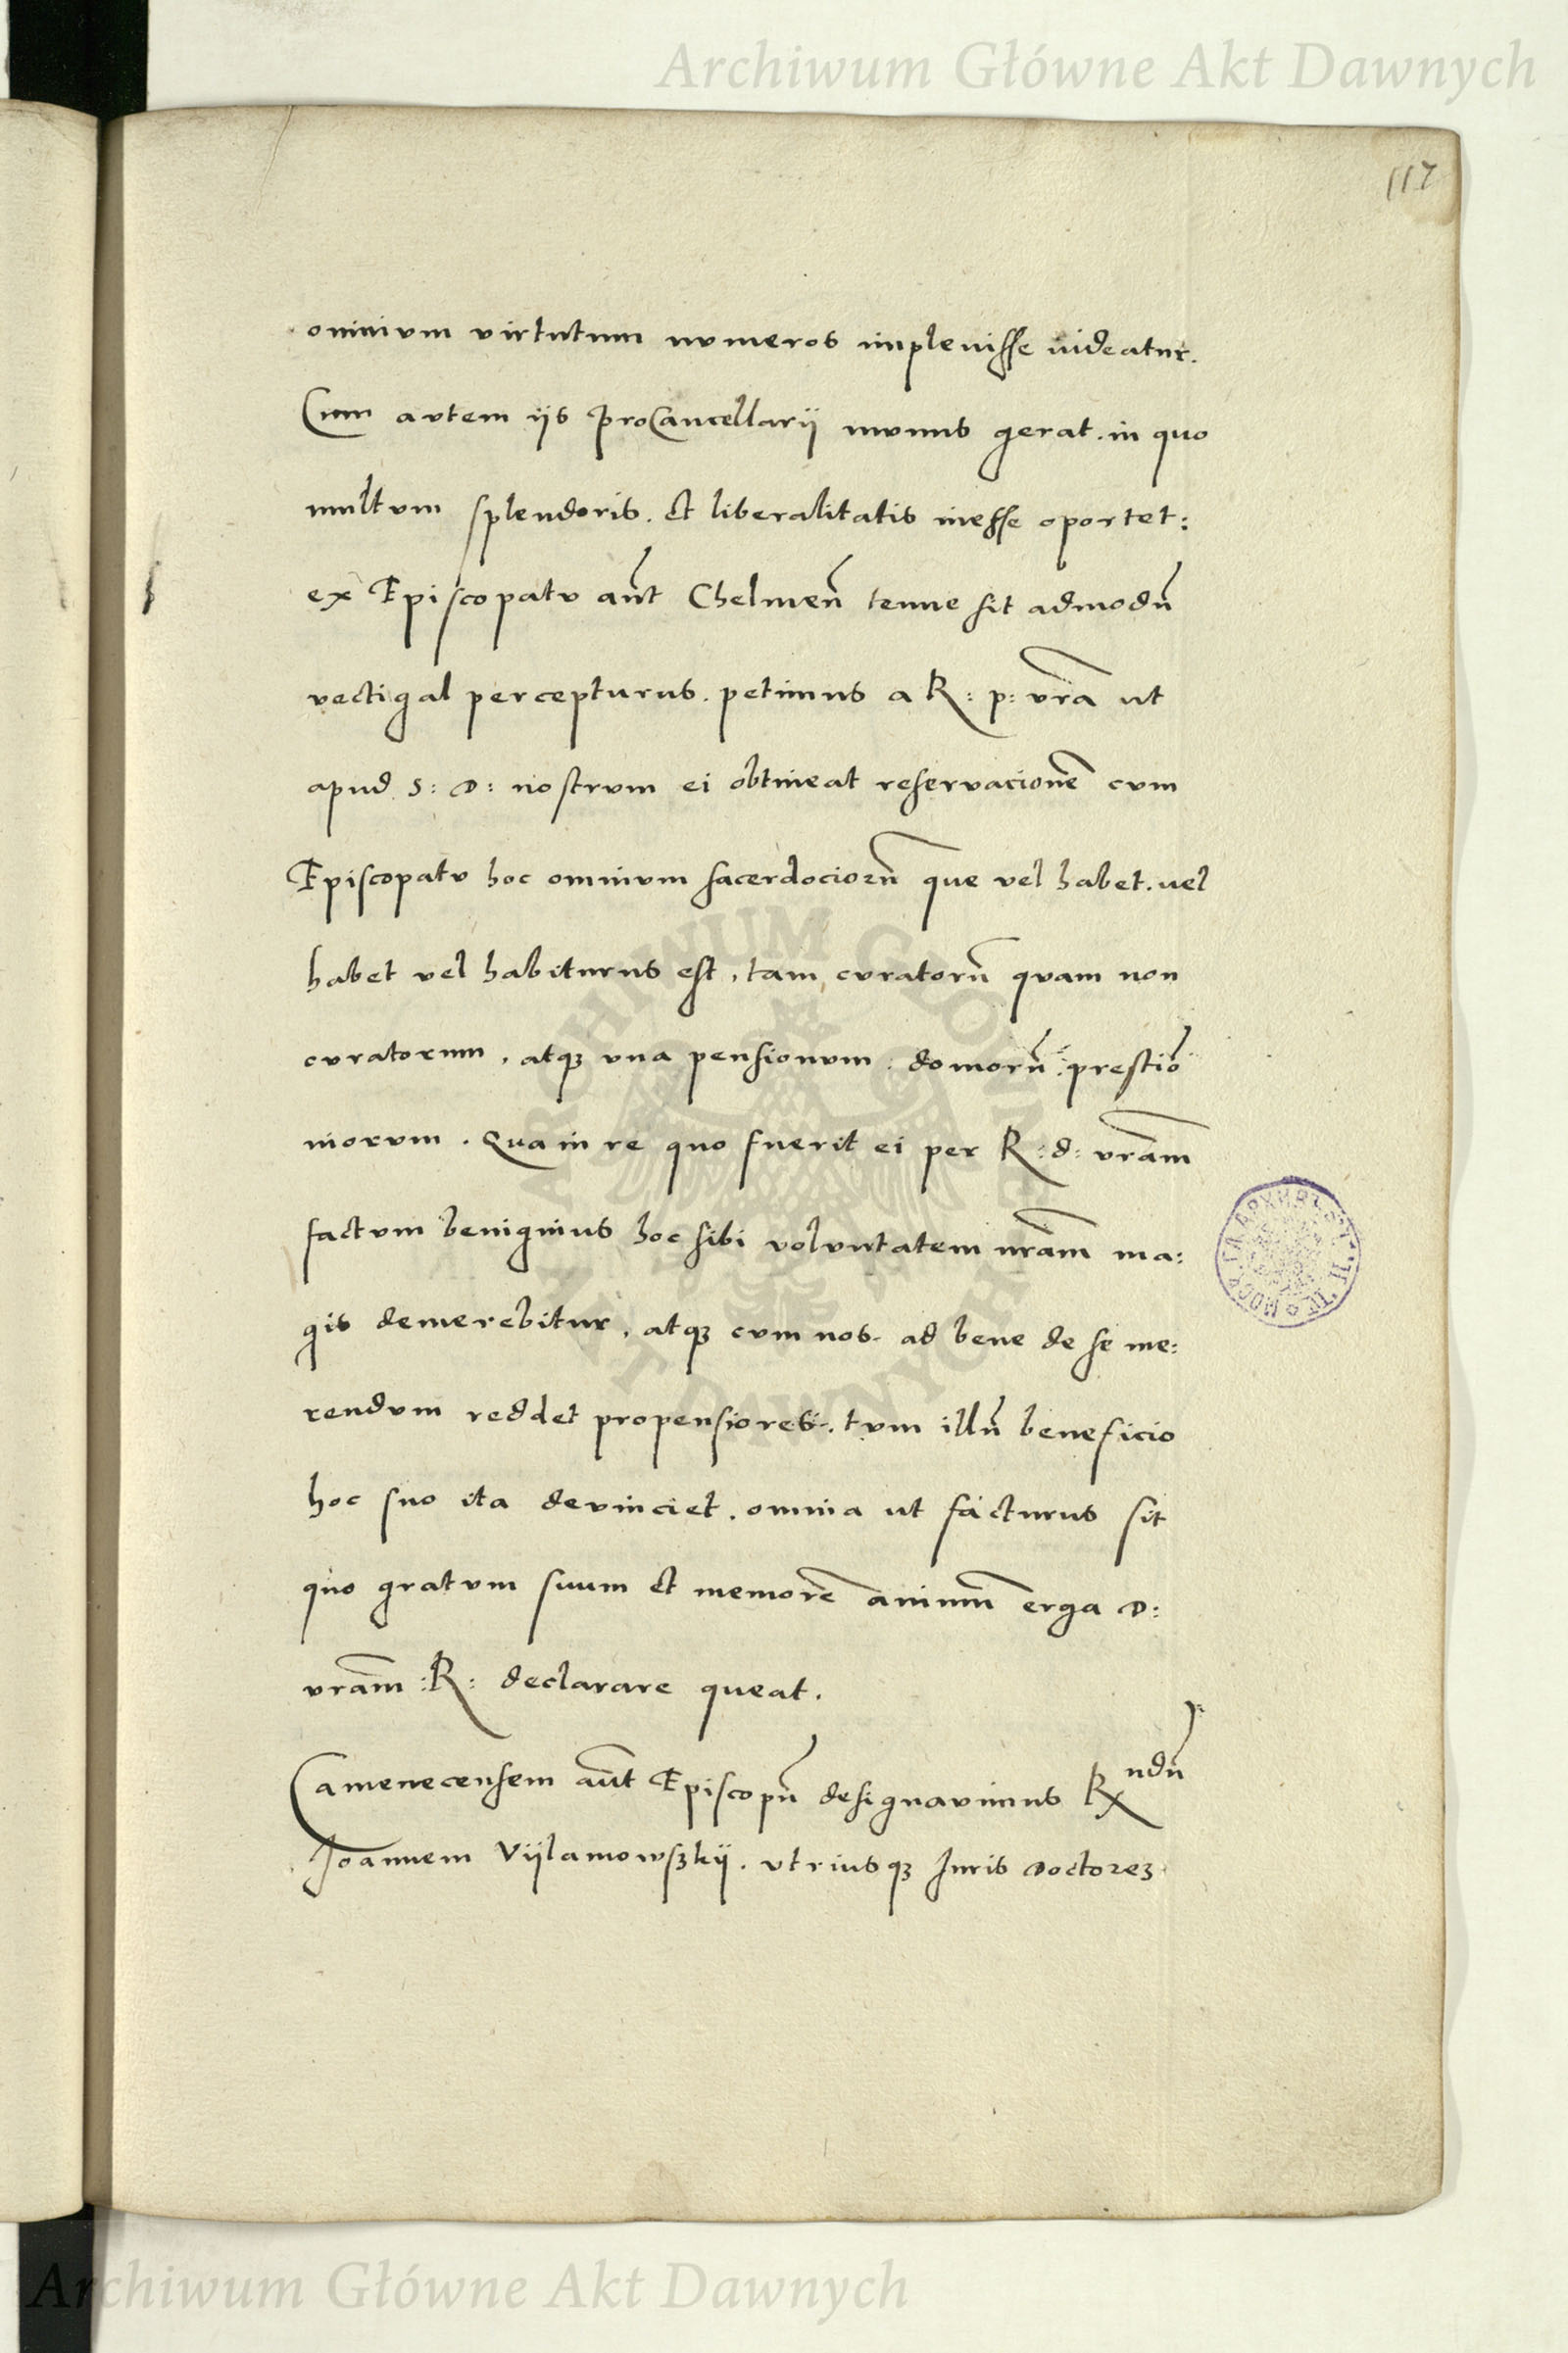 Archiwum Główne Akt Dawnych
117
omnivm virtutum nvmeros implevisse uideatur.
Cum avtem ijs ProCancellarij mvnus gerat. in quo
multvm splendoris. et liberalitatis inesse oportet:
ex Episcopatv aūt Chelmeñ tenue sit admodū
vectigal percepturus. petimus a R: p: vrā ut
apud S: D: nostrvm ei obtineat reservacionē cvm
Episcopatv hoc omnivm sacerdociorū que vel habet. uel
habet vel habiturus est, tam cvratorū qvam non
cvratorum, atqȝ vna pensionvm: domorū: prestiō
niorvm. Qva in re quo fuerit ei per R: d: vrām
factvm benignius hoc sibi volvntatem nrām ma:
gis demerebitur, atqȝ cvm nos. ad bene de se me:
rendvm reddet propensiores. tvm illū beneficio
hoc suo ita devinciet. omnia ut facturus sit
quo gratvm suum et memorē animū erga D:
vrām: R: declarare queat.
Camenecensem aūt Episcopū designavimus Rndū
Joannem Vijlamowsȝkij. vtriusqȝ Juris Doctoreȝ
ARCHIWUM GŁÓWNE AKT DAWNYCH
Archiwum Główne Akt Dawnych